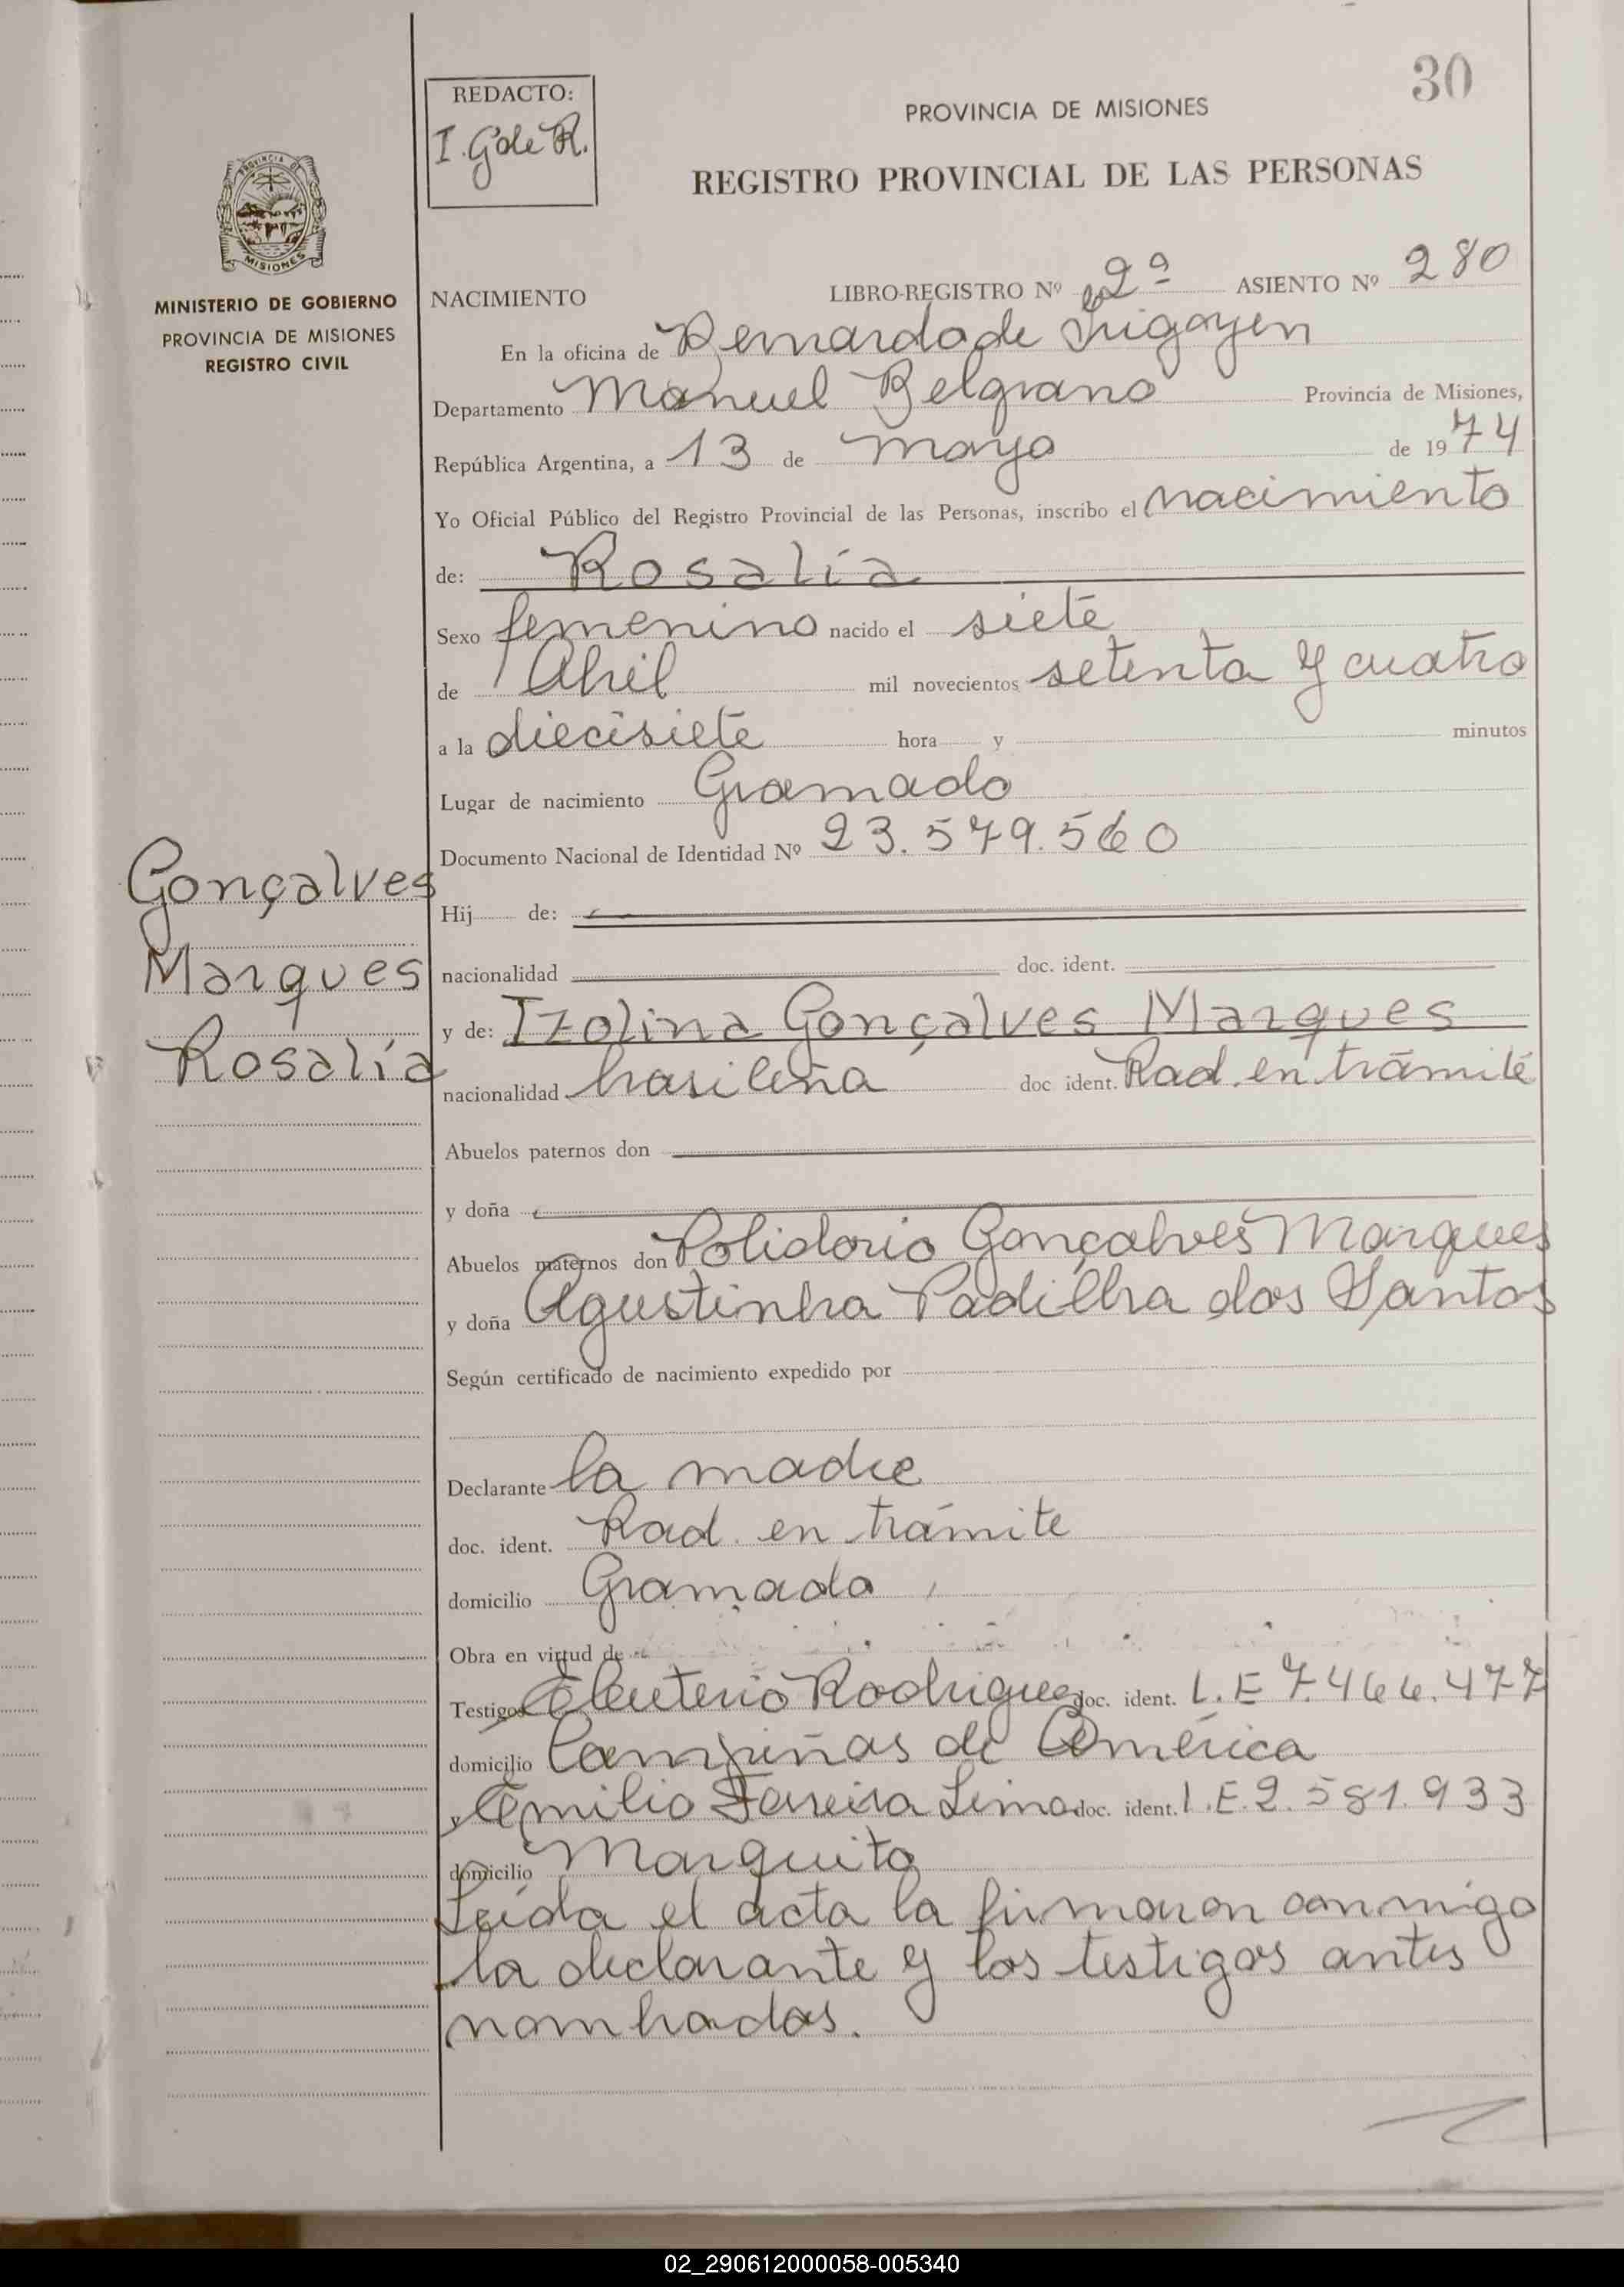 30
REDACTO:
I. Gole R.
PROVINCIA DE MISIONES
REGISTRO PROVINCIAL DE LAS PERSONAS
PROVINCIA DE
MISIONES
MINISTERIO DE GOBIERNO
PROVINCIA DE MISIONES
REGISTRO CIVIL
NACIMIENTO LIBRO-REGISTRO Nº 2º ASIENTO Nº 280
En la oficina de Bernardo de Irigoyen
Departamento Manuel Belgrano Provincia de Misiones,
República Argentina, a 13 de mayo de 1974
Yo Oficial Público del Registro Provincial de las Personas, inscribo el nacimiento
de: Rosalía
Sexo femenino nacido el siete
de Abril mil novecientos setenta y cuatro
a la diecisiete hora y minutos
Lugar de nacimiento Gramado
Documento Nacional de Identidad Nº 23.579.560
Gonçalves
Marques
Rosalía
Hij de:
nacionalidad doc. ident.
y de: Izolina Gonçalves Marques
nacionalidad brasileña doc ident. Rad. en trámite
Abuelos paternos don
y doña
Abuelos maternos don Polidorio Gonçalves Marques
y doña Agustinha Padilha dos Santos
Según certificado de nacimiento expedido por
Declarante la madre
doc. ident. Rad. en trámite
domicilio Gramado
Obra en virtud de
Testigos Eleuterio Rodrigues doc. ident. L.E 7.466.477
domicilio Campiñas de América
y Emilio Ferreira Lima doc. ident. L.E. 2.581.933
domicilio Marquito
Leída el acta la firmaron conmigo
la declarante y los testigos antes
nombrados.
02_290612000058-005340